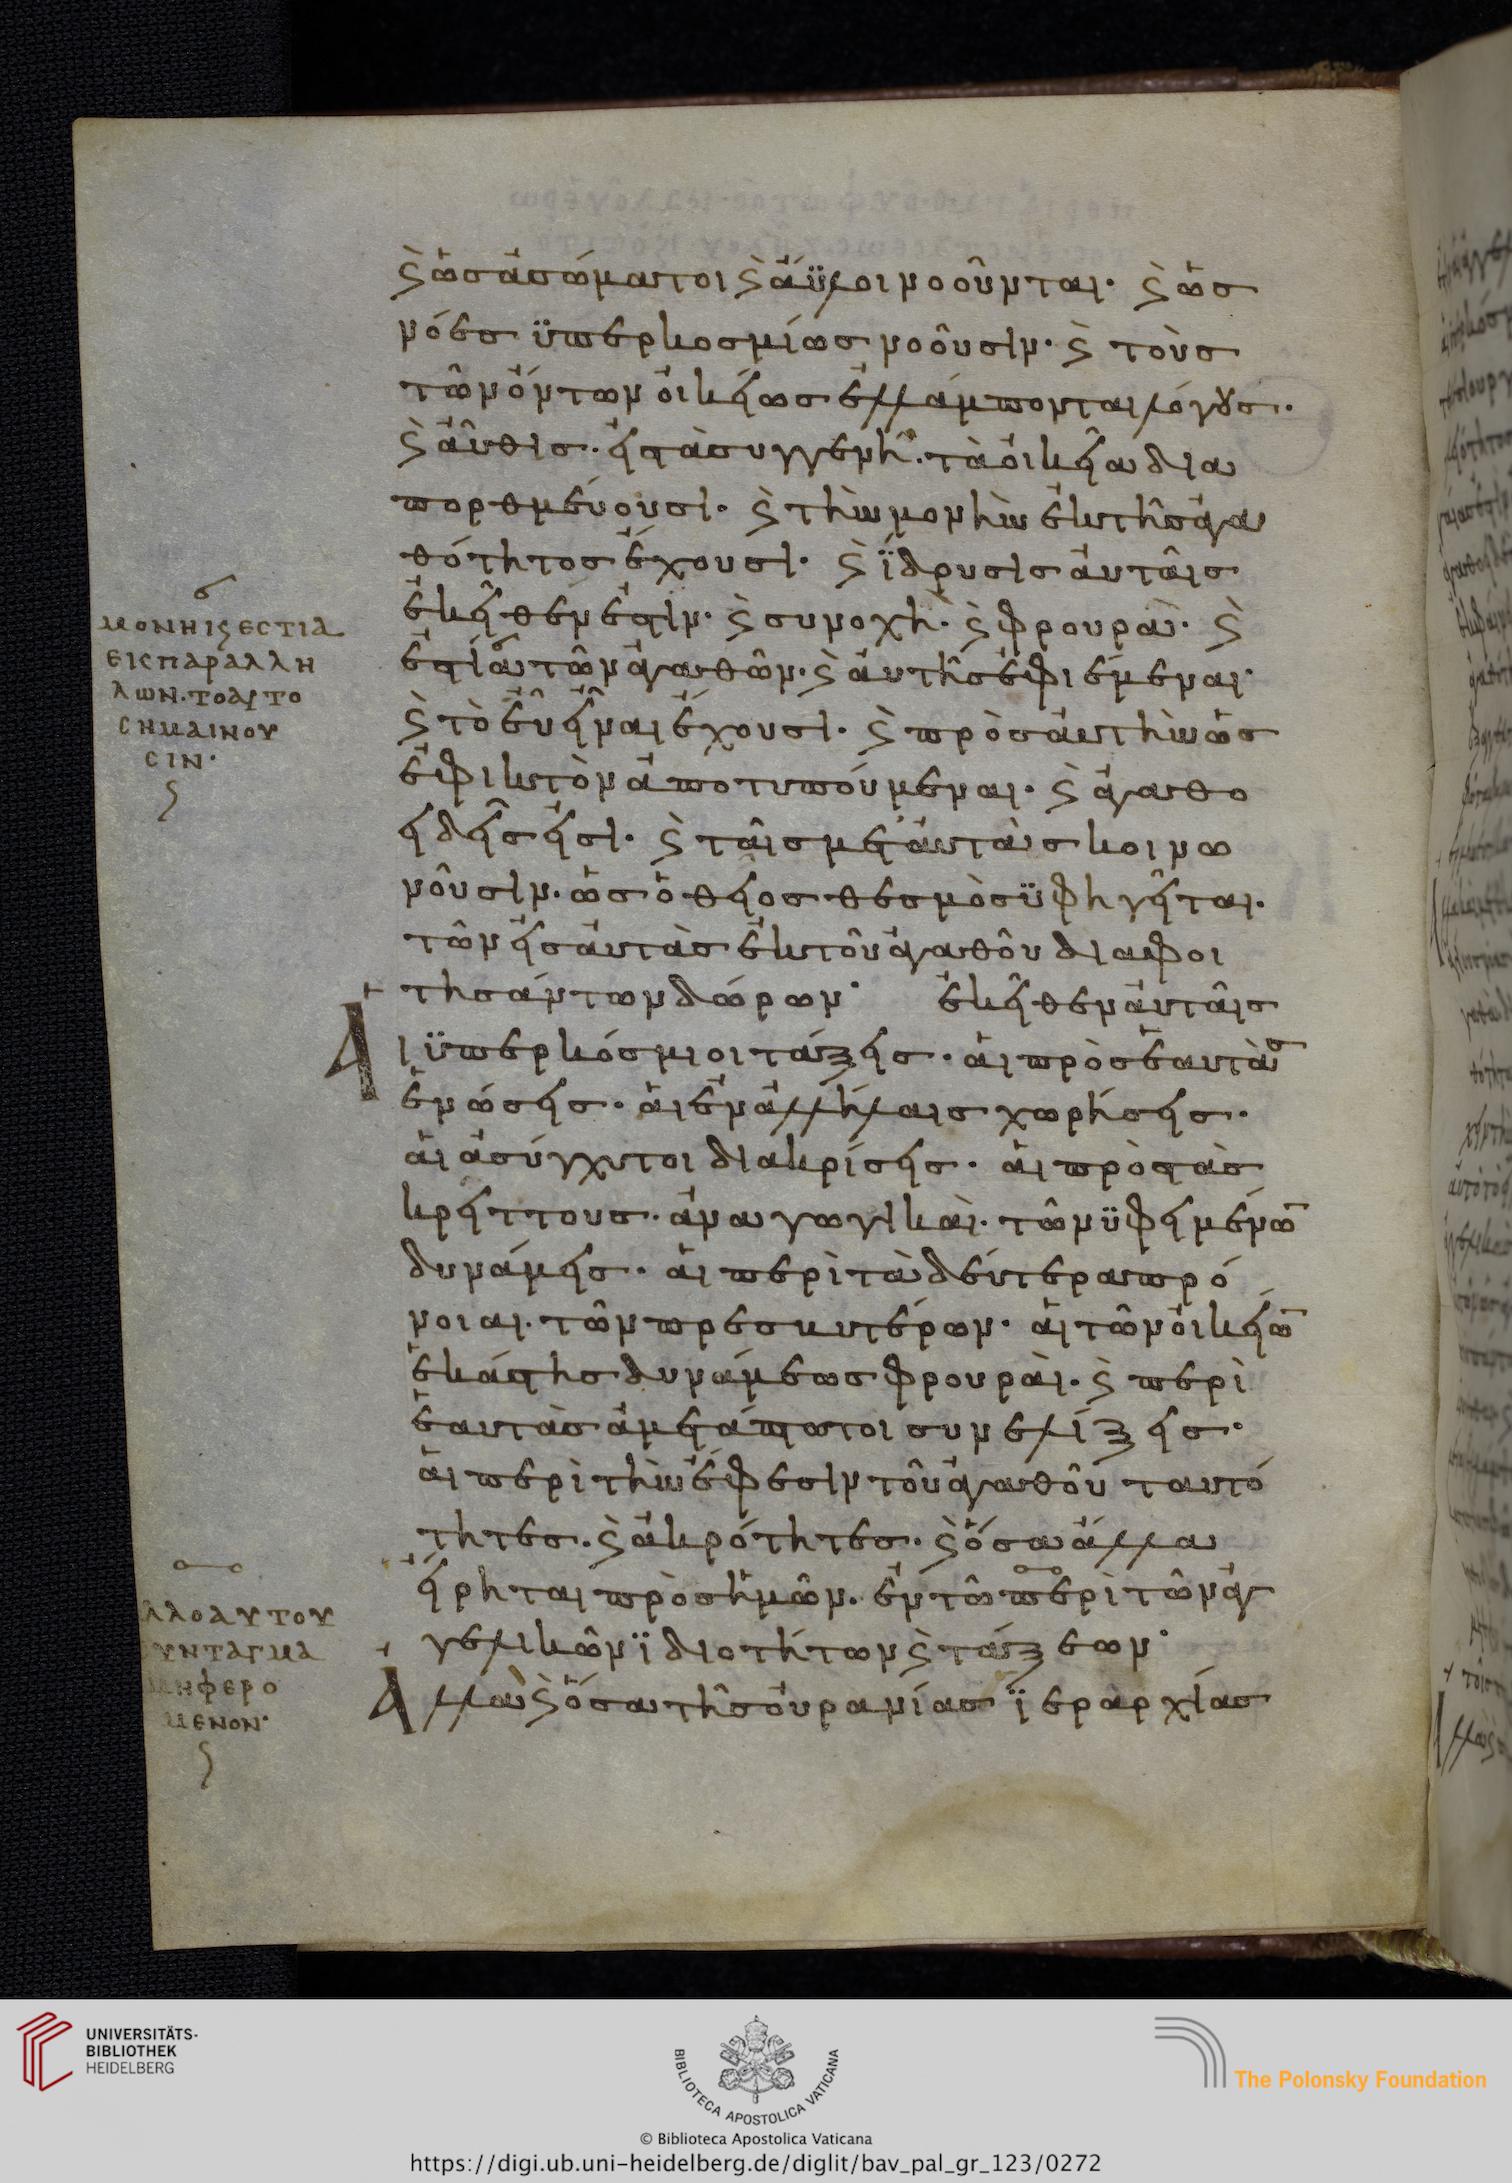 ϛ ὡς ἀσώματοι ϛ ἄϋλοι νοοῦνται· ϛ ὡς
νόες ϋπερκοσμίως νοοῦσιν· ϛ τοὺς
τῶν ὄντων οἰκείως ἐλλάμπονται λόγους·
ϛ αὖθις· εἰς τὰ συγγενῆ· τὰ οἰκεῖα δια
πορθμεύουσι· ϛ τὴν μονὴν ἐκ τῆς ἀγα
θότητος ἔχουσι· ϛ ϊδρυσις αὐταῖς
ἐκεῖθέν ἐστιν· ϛ συνοχὴ· ϛ φρουρὰ· ϛ
ἑστία τῶν ἀγαθῶν· ϛ αὐτῆς ἐφιέμεναι·
ϛ τὸ εὖ εἶναι ἔχουσι· ϛ πρὸς αὐτὴν ὡς
ἐφικτὸν ἀποτυπούμεναι· ϛ ἀγαθο
ειδεῖς εἰσι· ϛ ταῖς μετ' αὐτὰς κοινω
νοῦσιν· ὡς ὁ θεῖος θεσμὸς ϋφηγεῖται·
τῶν εἰς αὐτὰς ἐκ τοῦ ἀγαθοῦ διαφοι
τησάντων δώρων· ἐκεῖθεν αὐταῖς
Αἱ ϋπερκόσμιοι τάξεις· αἱ πρὸς ἑαυτὰς
ἑνώσεις· αἱ ἐν ἀλλήλαις χωρήσεις·
αἱ ἀσύγχυτοι διακρίσεις· αἱ πρὸς τὰς
κρείττους· ἀναγωγικαὶ· τῶν ϋφειμένων
δυνάμεις· αἱ περὶ τὰ δεύτερα πρό
νοιαι· τῶν πρεσβυτέρων· αἱ τῶν οἰκείων
ἑκάστης δυνάμεως φρουραὶ· ϛ περὶ
ἑαυτὰς ἀμετάπτωτοι συνελίξεις·
αἱ περὶ τὴν ἔφεσιν τοῦ ἀγαθοῦ ταυτό
τητες· ϛ ἀκρότητες· ϛ ὅσα ἄλλα
εἴρηται πρὸς ἡμῶν· ἐν τῶ περὶ τῶν ἀγ
γελικῶν ϊδιοτήτων ϛ τάξεων·
Αλλὰ ϛ ὅσα τῆς οὐρανίας ϊεραρχίας
ΜΟΝΗ Ιϛ ΕCΤΙΑ
ΕΙC ΠΑΡΑΛΛΗ
ΛΩΝ· ΤΟ ΑΥΤΟ
CΗΜΑΙΝΟΥ
CΙΝ·
ΛΛΟ ΑΥΤΟΥ
ΥΝΤΑΓΜΑ
ΜΗ ΦΕΡΟ
ΜΕΝΟΝ·
UNIVERSITÄTS-
BIBLIOTHEK
HEIDELBERG
BIBLIOTECA APOSTOLICA VATICANA
© Biblioteca Apostolica Vaticana
The Polonsky Foundation
https://digi.ub.uni-heidelberg.de/diglit/bav_pal_gr_123/0272